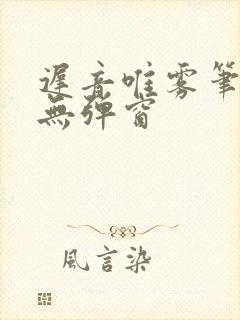 遲音唯雾筆
無彈窗
風言染